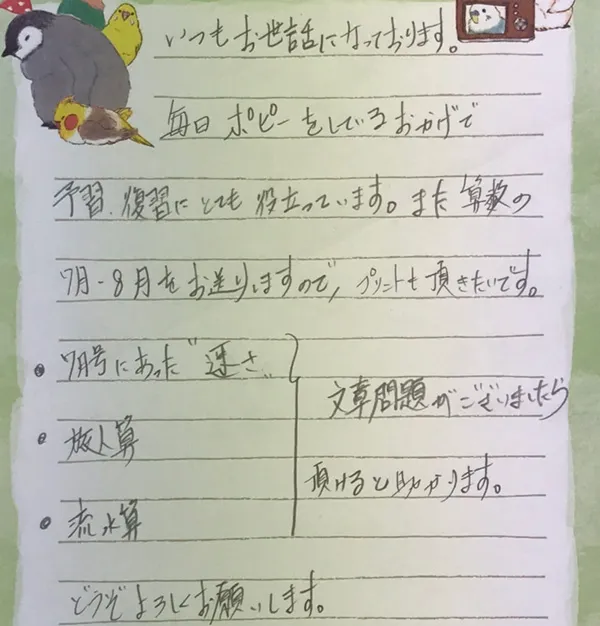 いつもお世話になっております。
毎日 ポピー をしているおかげで
予習、復習に とても 役立っています。また 算数の
7月-8月をお送りしますので、プリントも頂きたいです。
• 7月号にあった"速さ"
文章問題がございましたら
• 旅人算
頂けると助かります。
• 流水算
どうぞよろしくお願いします。